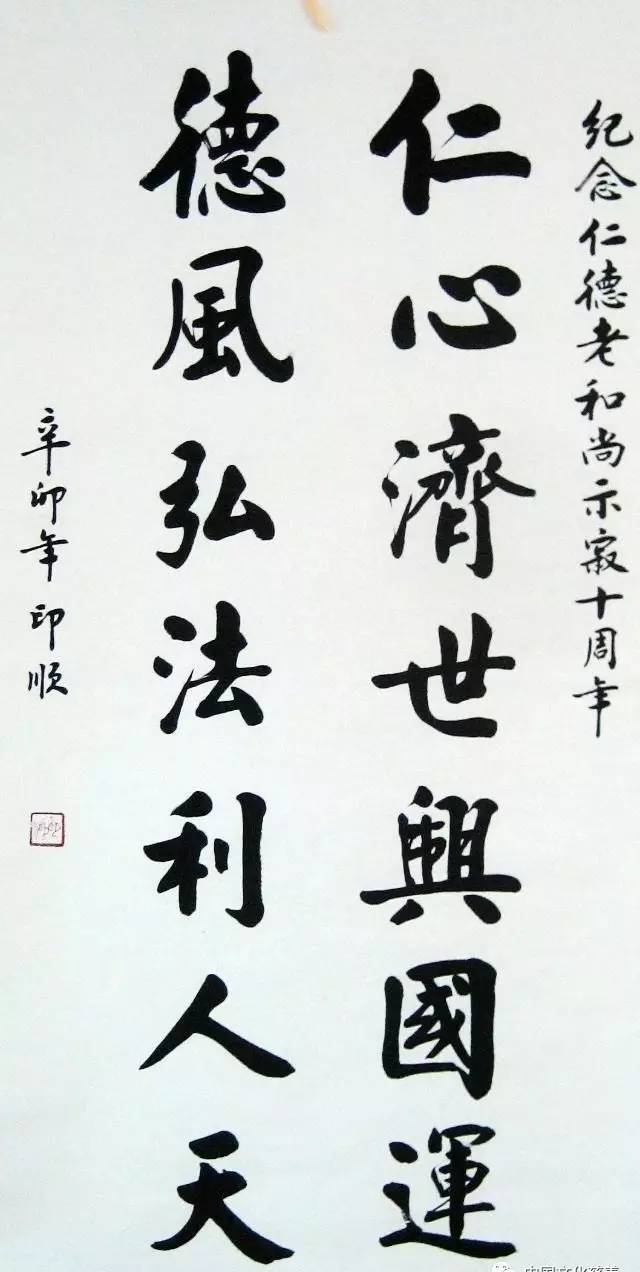 纪念仁德老和尚示寂十周年
仁心濟世興國運
德風弘法利人天
辛卯年 印順